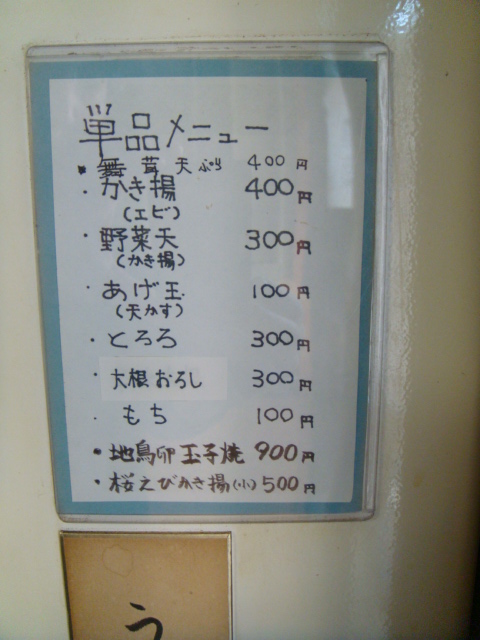 単品メニュー
・舞茸天ぷら 400円
・かき揚 400円
(エビ)
・野菜天 300円
(かき揚)
・あげ玉 100円
(天かす)
・とろろ 300円
・大根おろし 300円
・もち 100円
・地鳥卵玉子焼 900円
・桜えびかき揚(小) 500円
う